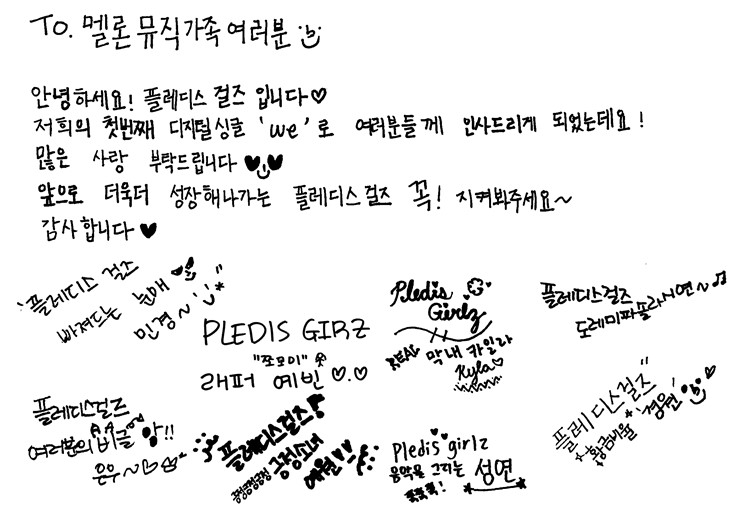 To. 멜론 뮤직가족 여러분
안녕하세요! 플레디스 걸즈 입니다♡
저희의 첫번째 디지털싱글 'we'로 여러분들께 인사드리게 되었는데요!
많은 사랑 부탁드립니다
앞으로 더욱더 성장해나가는 플레디스걸즈 꼭! 지켜봐주세요~
감사합니다♥
"플레디스 걸즈
빠져드는 눈매
민경~"
PLEDIS GIRZ
"쪼꼬미"
래퍼 예빈 ♡.♡
Pledis
Girlz
REAL 막내 카일라
Kyla♡
플레디스걸즈
도레미파솔라시연~♫
플레디스걸즈
여러분의 비글 왕!!
은우~♡
플레디스걸즈!
긍정긍정긍정 긍정소녀
예원!!
Pledis girlz
음악을 그리는
쿡쿡쿡! 성연
플레디스걸즈"
*황금비율* '경원'